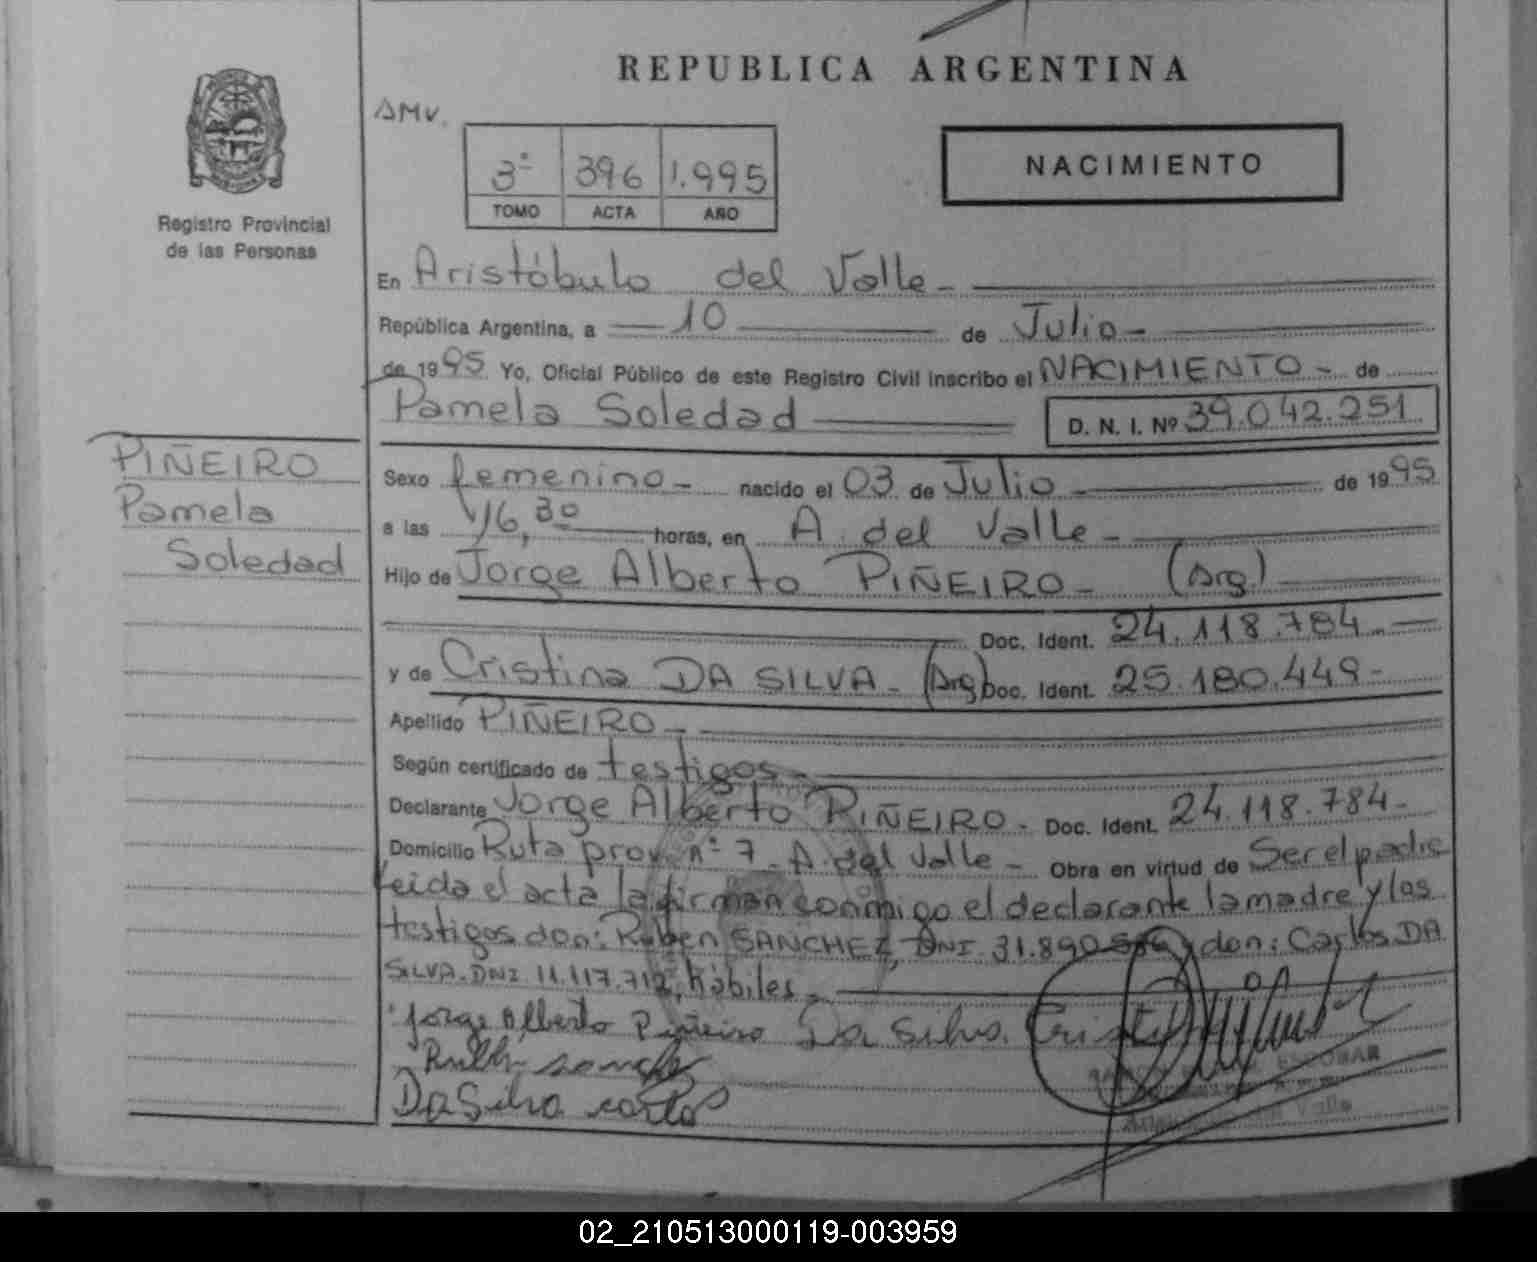 REPUBLICA ARGENTINA
Registro Provincial
de las Personas
3° 396 1.995
TOMO ACTA AÑO
NACIMIENTO
En Aristóbulo del Valle-
República Argentina, a 10 de Julio-
de 1995. Yo, Oficial Público de este Registro Civil inscribo el NACIMIENTO- de
Pamela Soledad D. N. I. Nº 39.042.251
PIÑEIRO
Pamela
Soledad
Sexo femenino- nacido el 03 de Julio- de 1995
a las 16,30 horas, en A. del Valle-
Hijo de Jorge Alberto PIÑEIRO- (Arg.)
Doc. Ident. 24.118.784-
y de Cristina DA SILVA- (Arg) Doc. Ident. 25.180.449-
Apellido PIÑEIRO-
Según certificado de testigos-
Declarante Jorge Alberto PIÑEIRO- Doc. Ident. 24.118.784-
Domicilio Ruta prov. n° 7- A. del Valle- Obra en virtud de Ser el padre
leida el acta la firman conmigo el declarante la madre y los
testigos don: Ruben SANCHEZ, DNI. 31.890 y don: Carlos DA
SILVA. DNI 11.117.712, hábiles-
Jorge Alberto Piñeiro Da Silva Cristina
Da Silva carlos
ESCOBAR
02_210513000119-003959